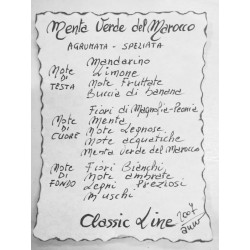 Menta Verde del Marocco
AGRUMATA - SPEZIATA
Mandarino
Note Limone
DI Note Fruttate
TESTA Buccia di banana
Fiori di Magnolia-Peonia
Note Menta
DI Note Legnose
CUORE Note acquatiche
Menta verde del Marocco
Note Fiori Bianchi
DI Note ambrate
FONDO Legni Preziosi
Muschi
Classic Line